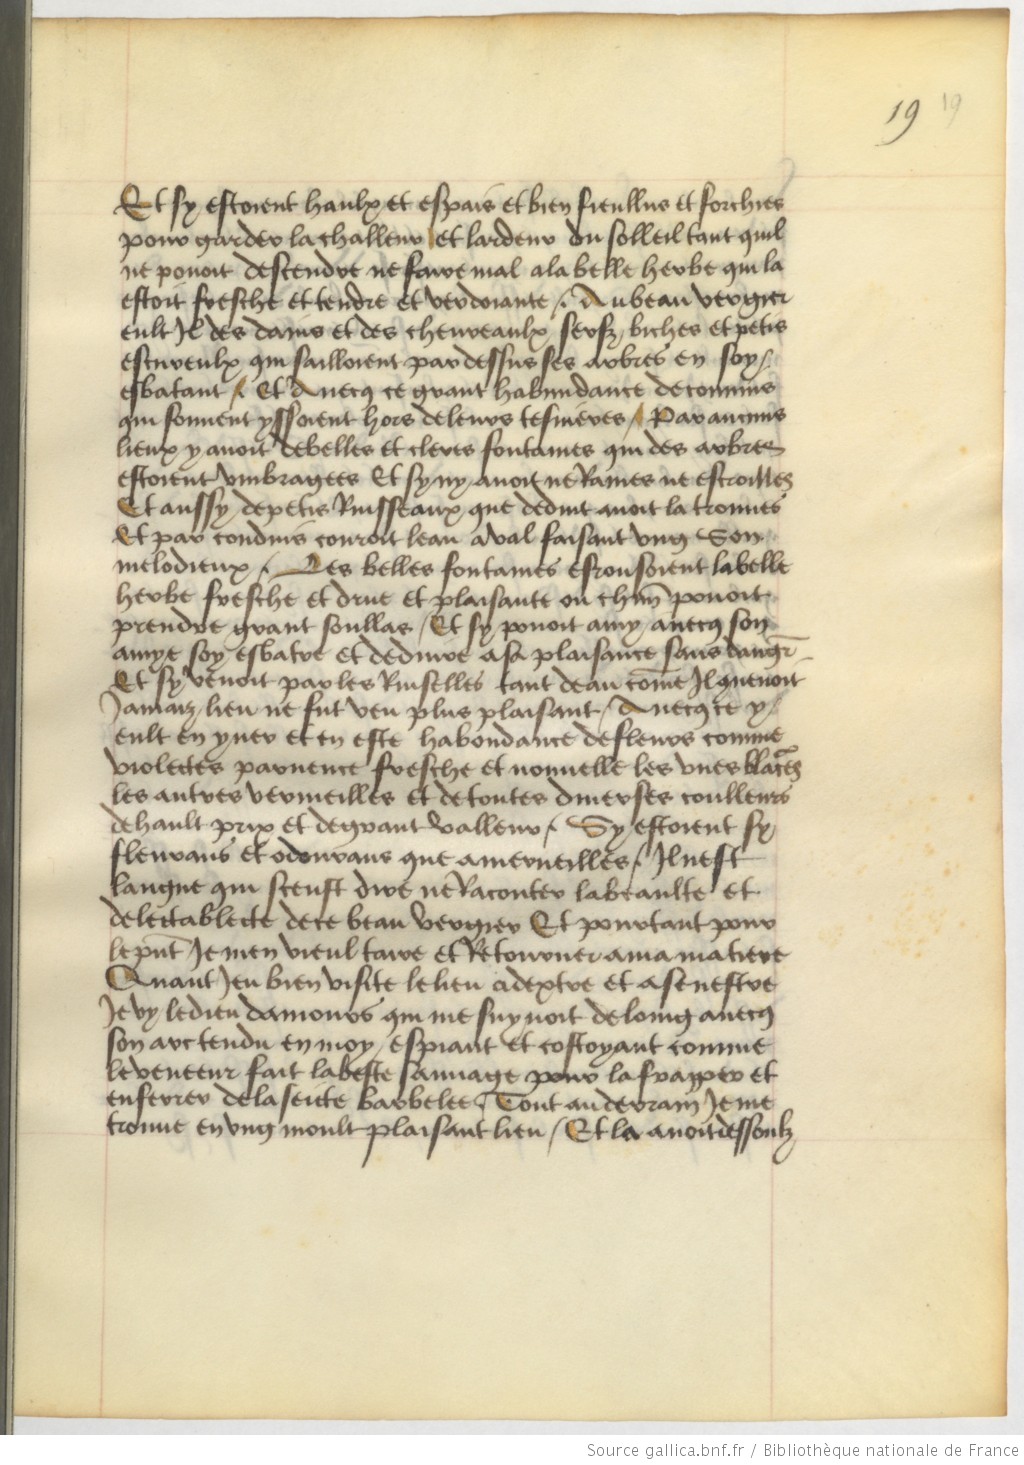 19 19
Et sy estoient haulx et espais et bien fieullus et forchies
pour garder la challeur / et lardeur du solleil tant quil
ne pouoit descendre ne faire mal a la belle herbe qui la
estoit fresche et tendre et verdoiante /. Au beau vergier
eult Jl des dains et des cheureaulx serfz biches et petis
escureulx qui sailloient par dessus ses arbres en soy /
esbatant /. Et Auecq ce grant habundance de connins
qui souuent yssoient hors de leurs tesnieres / Par aucuns
lieux y auoit de belles et cleres fontaines qui des arbres
estoient vmbragees Et sy ny auoit ne Raines ne escroilles
Et aussy de petis Ruisseaux que deduit auoit la trouues
Et par conduis couroit leau aval faisant vng Son
melodieux /. Les belles fontaines esrousoient la belle
herbe fresche et drue et plaisante ou chun pouoit
prendre grant soullas / Et sy pouoit amy auecq son
amye soy esbatre et deduire a sa plaisance sans dangr
Et sy venoit par les Ruiselles tant deau come Jl quenoit
Jamaiz lieu ne fut veu plus plaisant / Auecq ce y /
eult en yuer et en este habondance de fleurs comme
violettes paruence fresche et nouuelle les vnes blaces
les autres vermeilles et de toutes diuerses coulleurs
de hault prix et de grant valleur /. Sy estoient sy
fleurans et odourans que a merueilles /. Jl nest
langue qui sceust dire ne Raconter la beaulte et
delectablecte de ce beau vergier Et pourtant pour
le punt Je men vieul taire et Retourner a ma matiere
Quant Jeu bien visite le lieu a dextre et a senestre
Je vy le dieu damours qui me suyuoit de loing auecq
son arc tendu en moy espiant et costoyant comme
le veneeur fait la beste sauuage pour la frapper et
enferrer de la seicte barbelee / Tout au derrain Je me
trouue en vng moult plaisant lieu / Et la auoit dessoulz
Source gallica.bnf.fr / Bibliothèque nationale de France